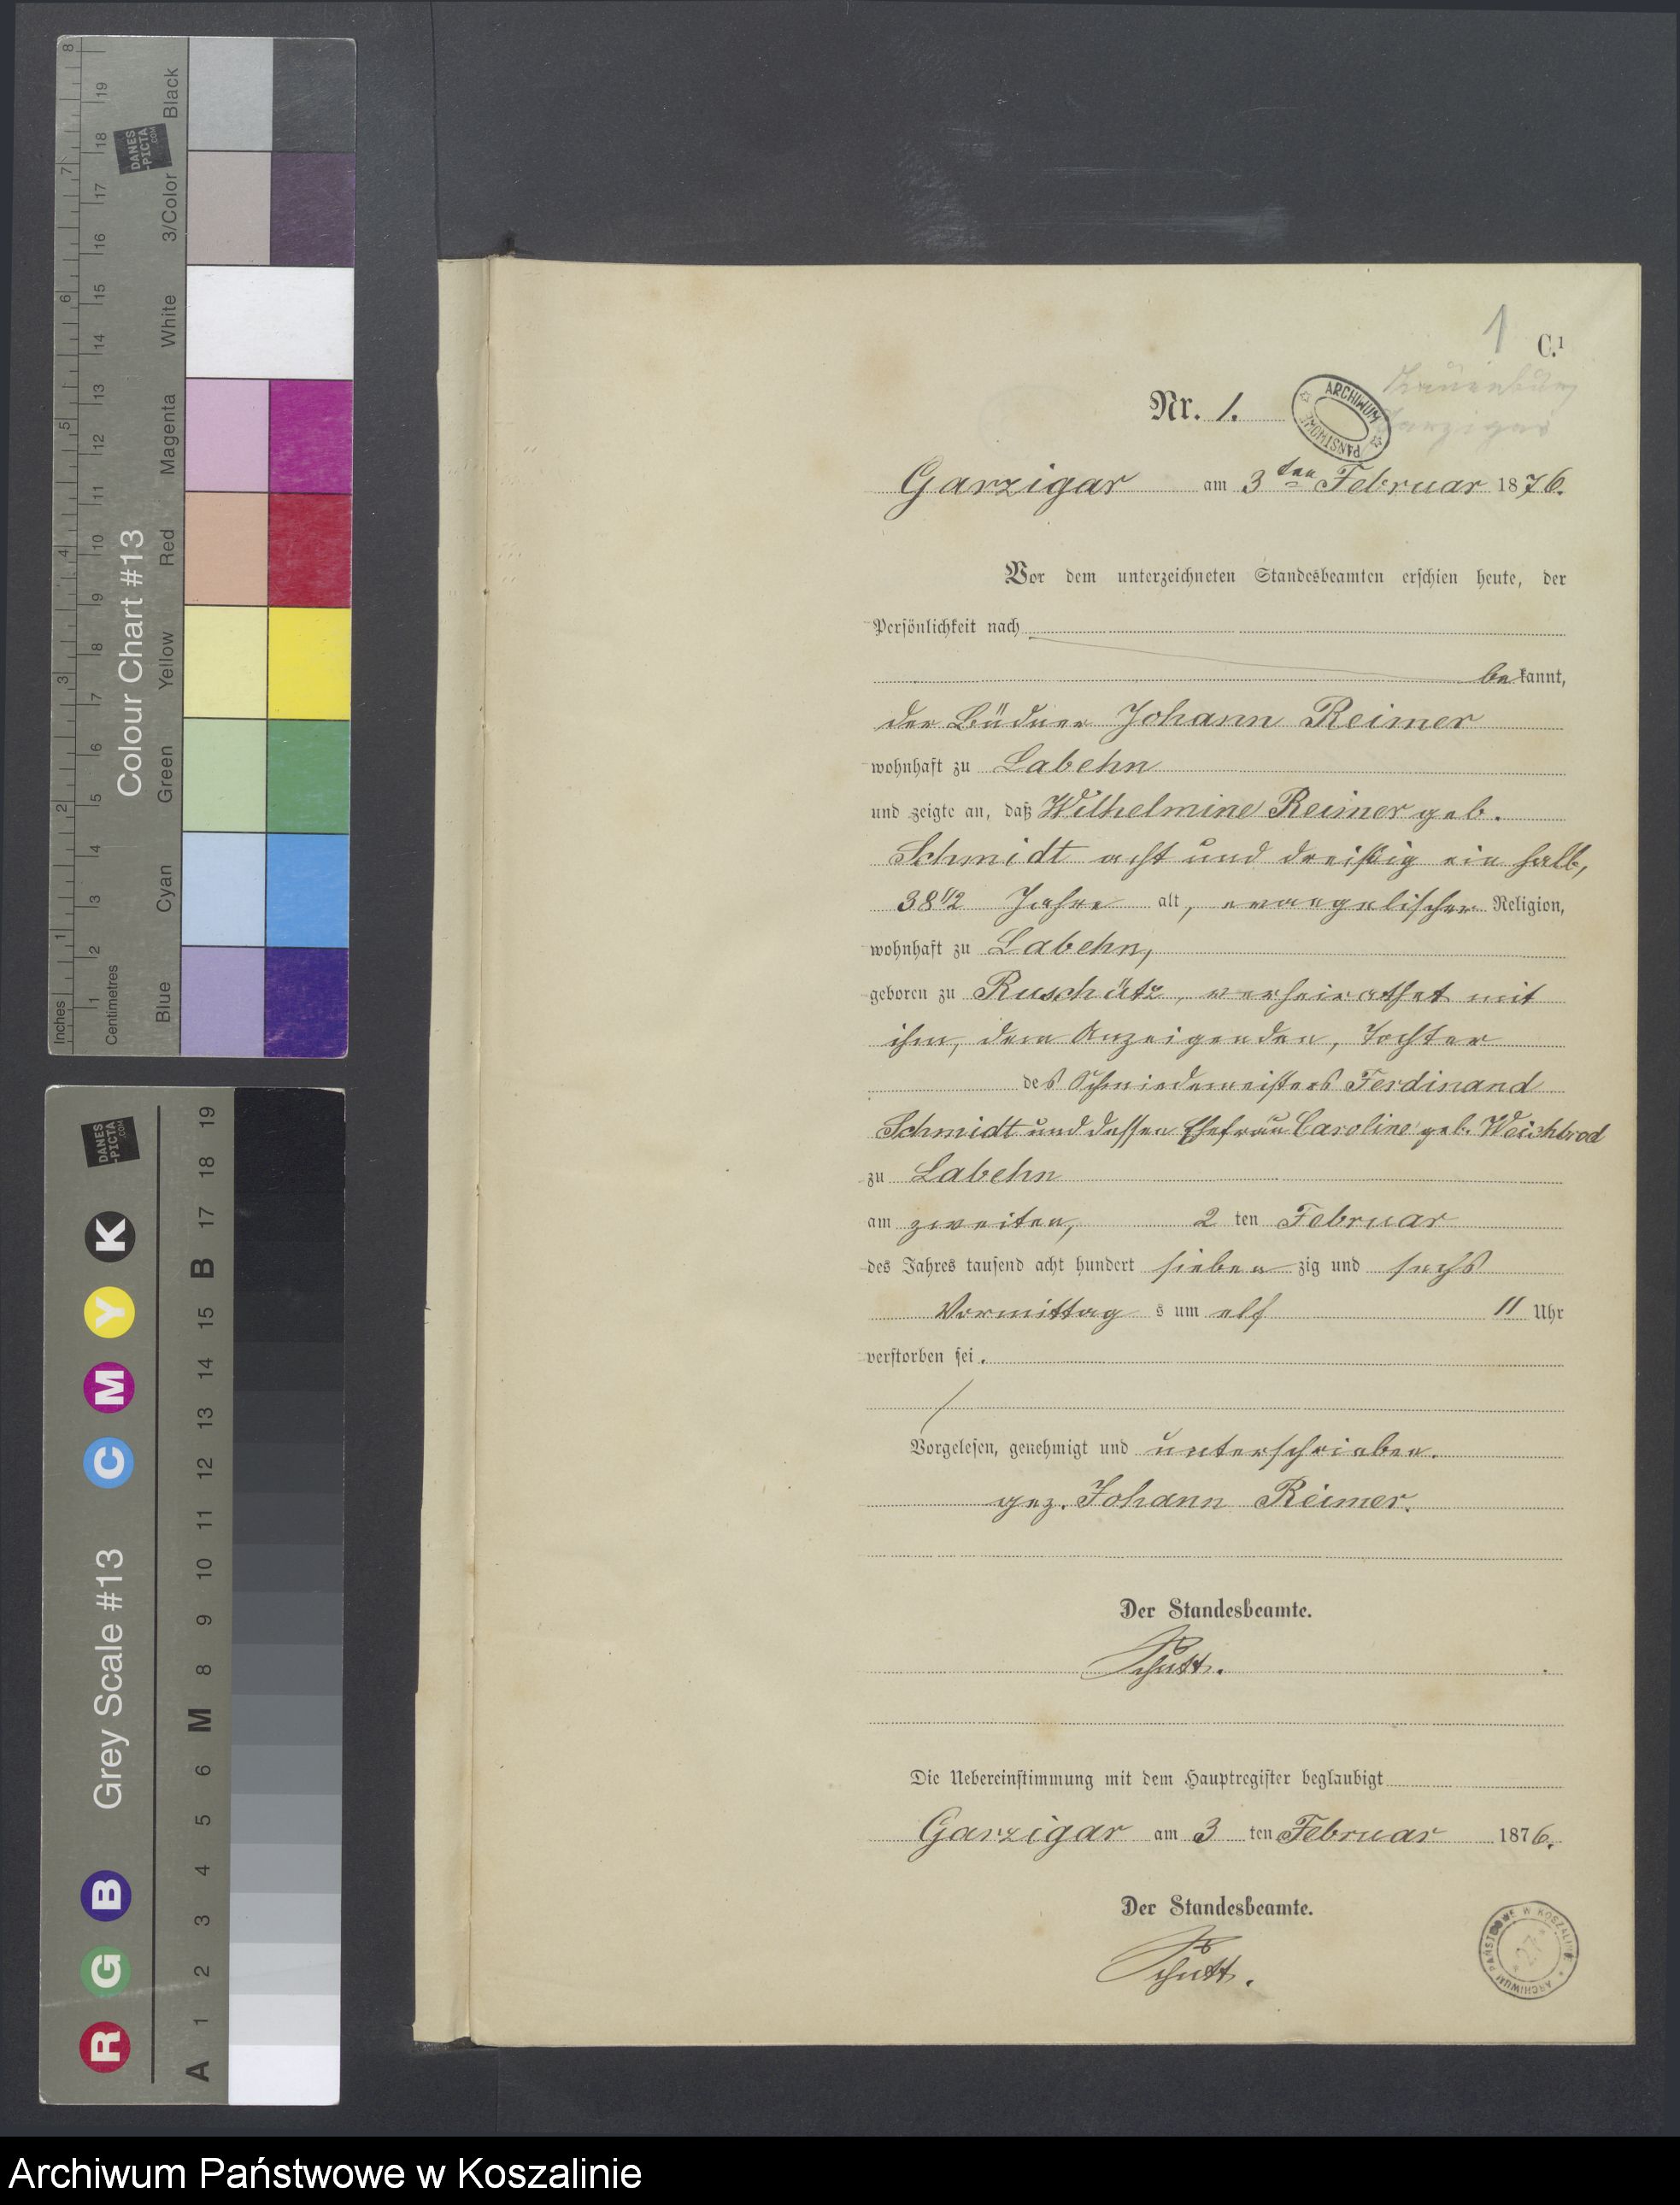 1
C.¹
Lauenburg
Garzigar
Nr. 1.
ARCHIWUM PAŃSTWOWE
Garzigar am 3ten Februar 1876.
Vor dem unterzeichneten Standesbeamten erschien heute, der
Persönlichkeit nach
bekannt,
der Büdner Johann Reimer
wohnhaft zu Labehn
und zeigte an, daß Wilhelmine Reimer geb.
Schmidt acht und dreißig ein halb,
38 1/2 Jahre alt, evangelischer Religion,
wohnhaft zu Labehn,
geboren zu Ruschütz, verheirathet mit
ihm, dem Anzeigenden, Tochter
des Schmiedemeisters Ferdinand
Schmidt und dessen Ehefrau Caroline geb. Weichbrod
zu Labehn
am zweiten, 2 ten Februar
des Jahres tausend acht hundert sieben zig und sechs
Vormittag s um elf 11 Uhr
verstorben sei.
Vorgelesen, genehmigt und unterschrieben.
gez. Johann Reimer.
Der Standesbeamte.
Schütt.
Die Uebereinstimmung mit dem Hauptregister beglaubigt
Garzigar am 3 ten Februar 1876.
Der Standesbeamte.
Schütt.
ARCHIWUM PAŃSTWOWE W KOSZALINIE
27
Inches
1 2 3 4 5 6 7 8
Centimetres
1 2 3 4 5 6 7 8 9 10 11 12 13 14 15 16 17 18 19
Colour Chart #13
DANES
-PICTA
.COM
Blue Cyan Green Yellow Red Magenta White 3/Color Black
Grey Scale #13
DANES
-PICTA
.COM
R G B C M Y K
A 1 2 3 4 5 6 M 8 9 10 11 12 13 14 15 B 17 18 19
Archiwum Państwowe w Koszalinie